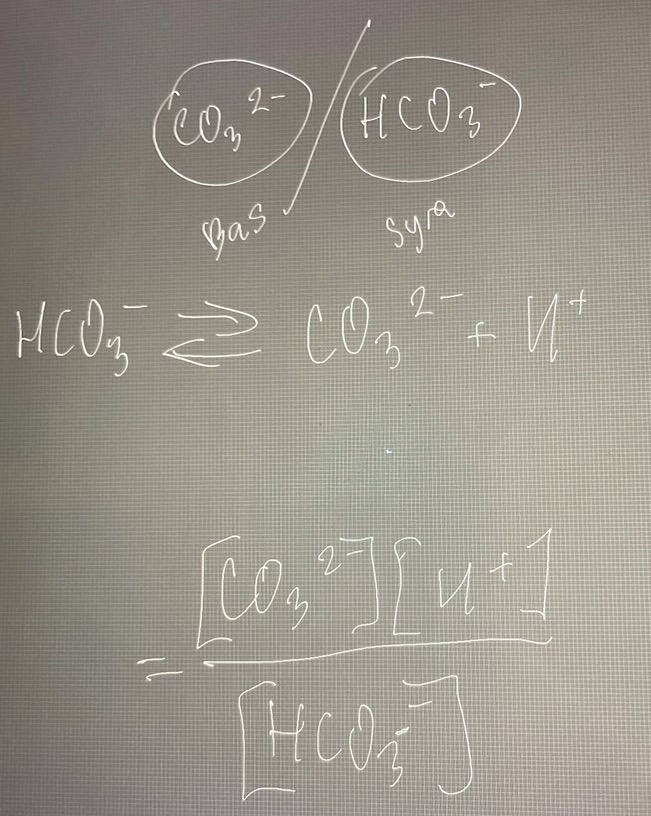 CO₃²⁻ / HCO₃⁻
Bas syra
HCO₃⁻ ⇌ CO₃²⁻ + H⁺
= [CO₃²⁻][H⁺]
[HCO₃⁻]